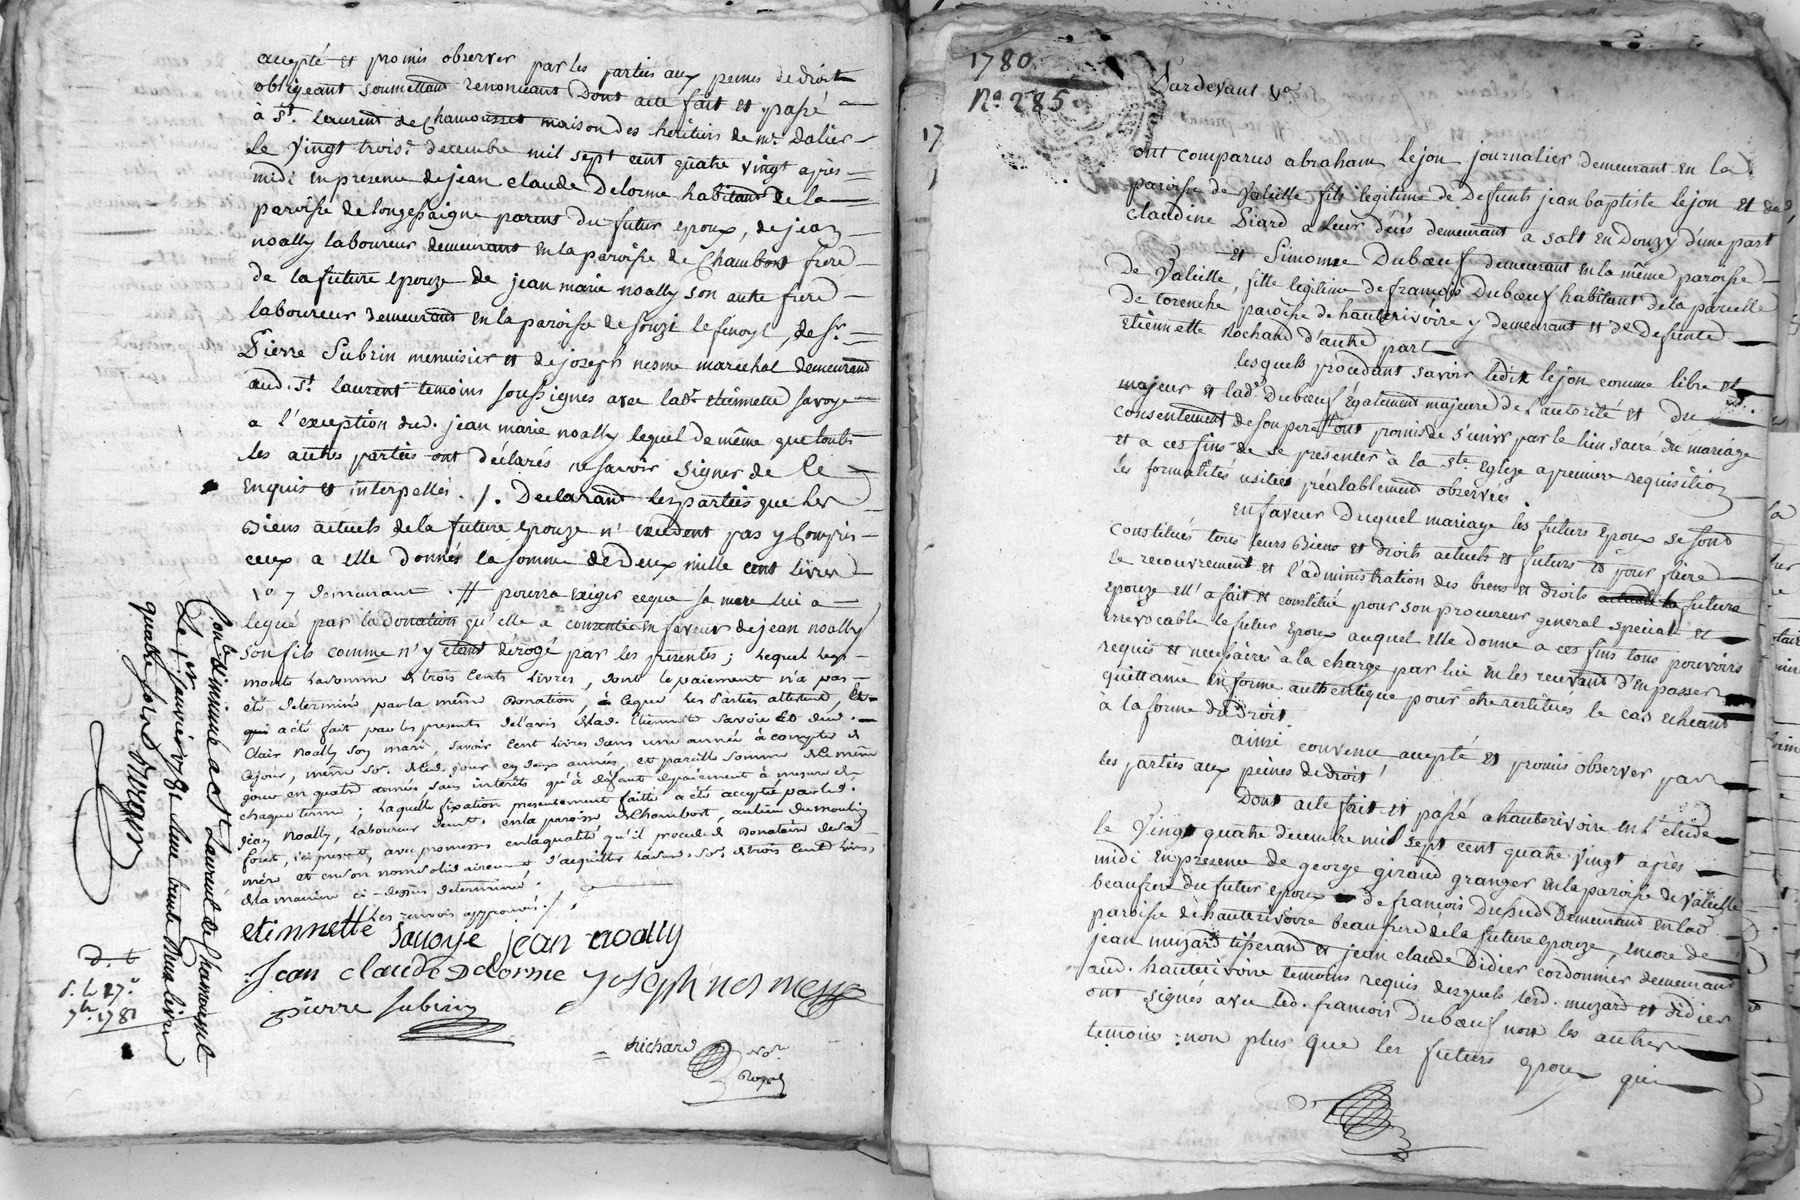 accepté et promis observer par les parties aux peines de droit
obligeant soumettant renonceant Dont acte fait et passé
à St. Laurent de Chamousset maison des heritiers de mr. Dalier
Le Vingt trois. decembre mil sept cent quatre vingt après
midi en presence de jean claude Delorme habitant de la
paroisse de longessaigne parent du futur epoux, de jean
noally laboureur demeurant en la paroisse de Chambost frere
de la future epouze de jean marie noally son autre frere
laboureur demeurant en la paroisse de souzi le
Pierre Subrin menuisier et de joseph nesme marechal demeurant
aud. St. Laurent temoins soussignés avec lade. etiennette savoye
a l'exception dud. jean marie noally lequel de même que toutes
les autres parties ont déclarés ne savoir signer de ce
Enquis et interpellés ./. Declarant les parties que les
Biens actuels de la future epouze n'excedent pas y Compris
ceux a elle donnés la somme de Deux mille cent livres
demeurant # pourra exiger ce que sa mere lui a
legué par la donation qu'elle a consentie en faveur de jean noally
son fils comme n'y etant dérogé par les presentes; lequel legs
monte la somme de trois Cents livres, dont le paiement n'a pas
été determiné par la même Donation, ce que les Parties attestent, et
qui a été fait par les presents de l'avis de lad. Etiennette Savoie et dud.
Clair Noally son mari, savoir Cent livres dans une année à compter de
ce jour, même so. de ce jour en deux années, et pareille somme de même
jour en quatre années sans interets qu'à défaut de paiement à mesure de
chaque terme; laquelle fixation presentement faitte a été acceptée par led.
jean Noally, Laboureur demt. en la paroisse de Chambost, au lieu du moulin
ici present, avec promesse en la qualité qu'il procede de Donataire de sa
mère et en son nom solidairement d'acquitter lad. so. de trois Cents livres,
de la maniere ci-dessus determiné.
les renvois approuvés ./.
etiennette savoye jean noally
Jean claude Delorme joseph nesme
pierre subrin
Richard
Not.
Royal
Contlé. et insinué a St Laurent de Chamousset
Le 1er janvier 1781
quatre sols
D. t.
1781
1780
No. 285
17
Pardevant
ont comparus abraham lejon journalier demeurant en la
paroisse de Valeille fils legitime de Defunts jean baptiste lejon et de
claudine Piard a leur décés demeurant a salt en Donzy d'une part
Et Simonne Duboeuf demeurant en la même paroisse
de Valeille, fille legitime de françois Duboeuf habitant de la parcelle
de torenche paroisse de hauterivoire y demeurant et de Defunte
etiennette Rochand d'autre part
lesquels procedant savoir ledit lejon comme libre et
majeur et lade. Duboeuf également majeure de l'autorité et du
consentement de son pere ont promis de s'unir par le lien sacré du mariage
et a ces fins de se presenter à la ste. Eglize a premiere requisition
les formalités usitées préalablement observées.
En faveur Duquel mariage les futurs epoux se sont
constitués tous leurs Biens et droits actuels et futurs et pour faire
le recouvrement et l'administration des biens et droits actuels la future
epouze ell' a fait et constitué pour son procureur general special et
irrevocable le futur epoux auquel elle donne a ces fins tous pouvoirs
requis et necessaires à la charge par lui en les recevant d'en passer
quittance en forme authentique pour être restitués le cas echeant
à la forme du Droit.
ainsi convenu accepté et promis observer par
les parties aux peines de droit
Dont acte fait et passé a hauterivoire en l'etude
le Vingt quatre decembre mil sept cent quatre vingt après
midi en presence de george giraud granger en la paroisse de Valeille
beaufrere du futur epoux de françois Dusud Demeurant en lad.
paroisse de hauterivoire beaufrere de la future epouze, encore de
jean muzard tisserand et jean claude Didier cordonnier demeurant
aud. hauterivoire temoins requis desquels led. muzard et didier
ont signés avec led. francois Duboeuf non les autres
temoins non plus que les futurs epoux qui